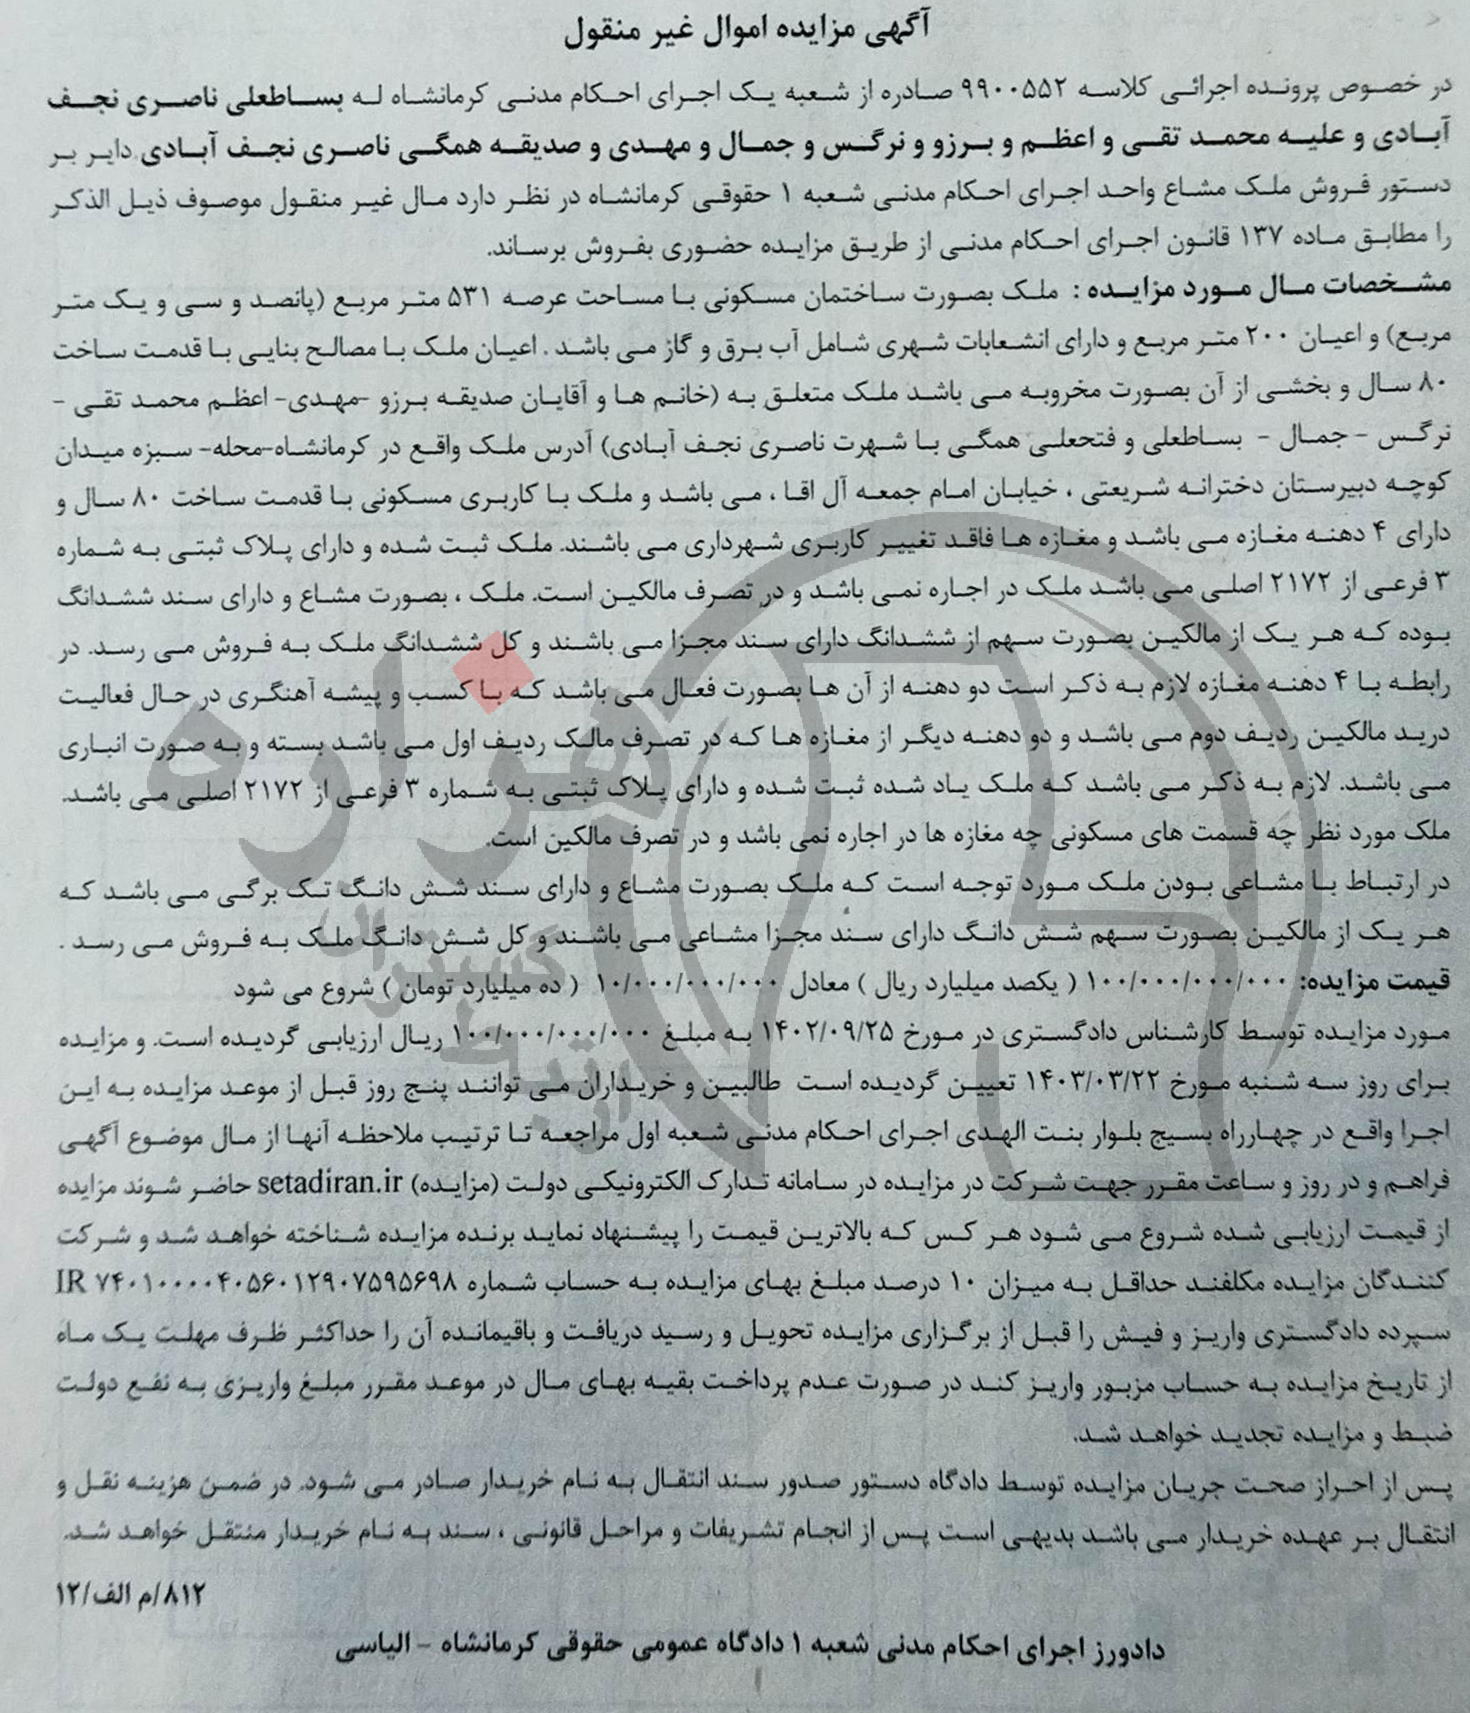 آگهی مزایده اموال غیر منقول
در خصوص پرونده اجرائی کلاسه ۹۹۰۰۵۵۲ صادره از شعبه یک اجرای احکام مدنی کرمانشاه له بساطعلی ناصری نجف
آبادی و علیه محمد تقی و اعظم و برزو و نرگس و جمال و مهدی و صدیقه همگی ناصری نجف آبادی دایر بر
دستور فروش ملک مشاع واحد اجرای احکام مدنی شعبه ۱ حقوقی کرمانشاه در نظر دارد مال غیر منقول موصوف ذیل الذکر
را مطابق ماده ۱۳۷ قانون اجرای احکام مدنی از طریق مزایده حضوری بفروش برساند.
مشخصات مال مورد مزایده : ملک بصورت ساختمان مسکونی با مساحت عرصه ۵۳۱ متر مربع (پانصد و سی و یک متر
مربع) و اعیان ۲۰۰ متر مربع و دارای انشعابات شهری شامل آب برق و گاز می باشد . اعیان ملک با مصالح بنایی با قدمت ساخت
۸۰ سال و بخشی از آن بصورت مخروبه می باشد ملک متعلق به (خانم ها و آقایان صدیقه برزو -مهدی- اعظم محمد تقی -
نرگس - جمال - بساطعلی و فتحعلی همگی با شهرت ناصری نجف آبادی) آدرس ملک واقع در کرمانشاه-محله- سبزه میدان
کوچه دبیرستان دخترانه شریعتی ، خیابان امام جمعه آل اقا ، می باشد و ملک با کاربری مسکونی با قدمت ساخت ۸۰ سال و
دارای ۴ دهنه مغازه می باشد و مغازه ها فاقد تغییر کاربری شهرداری می باشند. ملک ثبت شده و دارای پلاک ثبتی به شماره
۳ فرعی از ۲۱۷۲ اصلی می باشد ملک در اجاره نمی باشد و در تصرف مالکین است. ملک ، بصورت مشاع و دارای سند ششدانگ
بوده که هر یک از مالکین بصورت سهم از ششدانگ دارای سند مجزا می باشند و کل ششدانگ ملک به فروش می رسد. در
رابطه با ۴ دهنه مغازه لازم به ذکر است دو دهنه از آن ها بصورت فعال می باشد که با کسب و پیشه آهنگری در حال فعالیت
درید مالکین ردیف دوم می باشد و دو دهنه دیگر از مغازه ها که در تصرف مالک ردیف اول می باشد بسته و به صورت انباری
می باشد. لازم به ذکر می باشد که ملک یاد شده ثبت شده و دارای پلاک ثبتی به شماره ۳ فرعی از ۲۱۷۲ اصلی می باشد.
ملک مورد نظر چه قسمت های مسکونی چه مغازه ها در اجاره نمی باشد و در تصرف مالکین است.
در ارتباط با مشاعی بودن ملک مورد توجه است که ملک بصورت مشاع و دارای سند شش دانگ تک برگی می باشد که
هر یک از مالکین بصورت سهم شش دانگ دارای سند مجزا مشاعی می باشند و کل شش دانگ ملک به فروش می رسد .
قیمت مزایده: ۱۰۰/۰۰۰/۰۰۰/۰۰۰ ( یکصد میلیارد ریال ) معادل ۱۰/۰۰۰/۰۰۰/۰۰۰ ( ده میلیارد تومان ) شروع می شود
مورد مزایده توسط کارشناس دادگستری در مورخ ۱۴۰۲/۰۹/۲۵ به مبلغ ۱۰۰/۰۰۰/۰۰۰/۰۰۰ ریال ارزیابی گردیده است. و مزایده
برای روز سه شنبه مورخ ۱۴۰۳/۰۳/۲۲ تعیین گردیده است طالبین و خریداران می توانند پنج روز قبل از موعد مزایده به این
اجرا واقع در چهارراه بسیج بلوار بنت الهدی اجرای احکام مدنی شعبه اول مراجعه تا ترتیب ملاحظه آنها از مال موضوع آگهی
فراهم و در روز و ساعت مقرر جهت شرکت در مزایده در سامانه تدارک الکترونیکی دولت (مزایده) setadiran.ir حاضر شوند مزایده
از قیمت ارزیابی شده شروع می شود هر کس که بالاترین قیمت را پیشنهاد نماید برنده مزایده شناخته خواهد شد و شرکت
کنندگان مزایده مکلفند حداقل به میزان ۱۰ درصد مبلغ بهای مزایده به حساب شماره IR ۷۴۰۱۰۰۰۰۴۰۵۶۰۱۲۹۰۷۵۹۵۶۹۸
سپرده دادگستری واریز و فیش را قبل از برگزاری مزایده تحویل و رسید دریافت و باقیمانده آن را حداکثر ظرف مهلت یک ماه
از تاریخ مزایده به حساب مزبور واریز کند در صورت عدم پرداخت بقیه بهای مال در موعد مقرر مبلغ واریزی به نفع دولت
ضبط و مزایده تجدید خواهد شد.
پس از احراز صحت جریان مزایده توسط دادگاه دستور صدور سند انتقال به نام خریدار صادر می شود. در ضمن هزینه نقل و
انتقال بر عهده خریدار می باشد بدیهی است پس از انجام تشریفات و مراحل قانونی ، سند به نام خریدار منتقل خواهد شد.
۸۱۲/م الف/۱۲
دادورز اجرای احکام مدنی شعبه ۱ دادگاه عمومی حقوقی کرمانشاه - الیاسی
هزاره
گستران
ارتباط